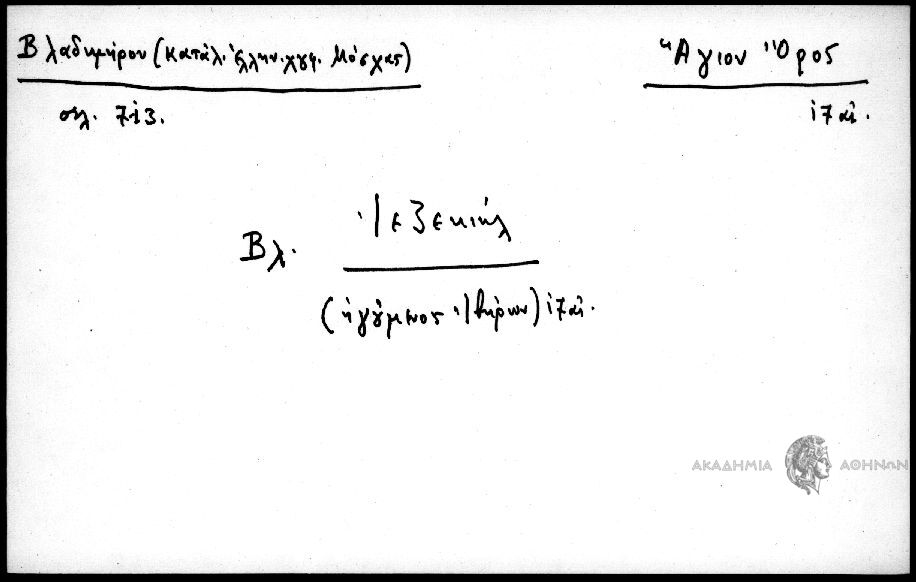 Βλαδιμήρου (Κατάλ. ἑλλην. χγφ. Μόσχας)
Ἅγιον Ὄρος
σελ. 713.
17 αἰ.
Βλ. Ἰεζεκιήλ
(ἡγούμενος Ἰβήρων) 17 αἰ.
ΑΚΑΔΗΜΙΑ ΑΘΗΝΩΝ